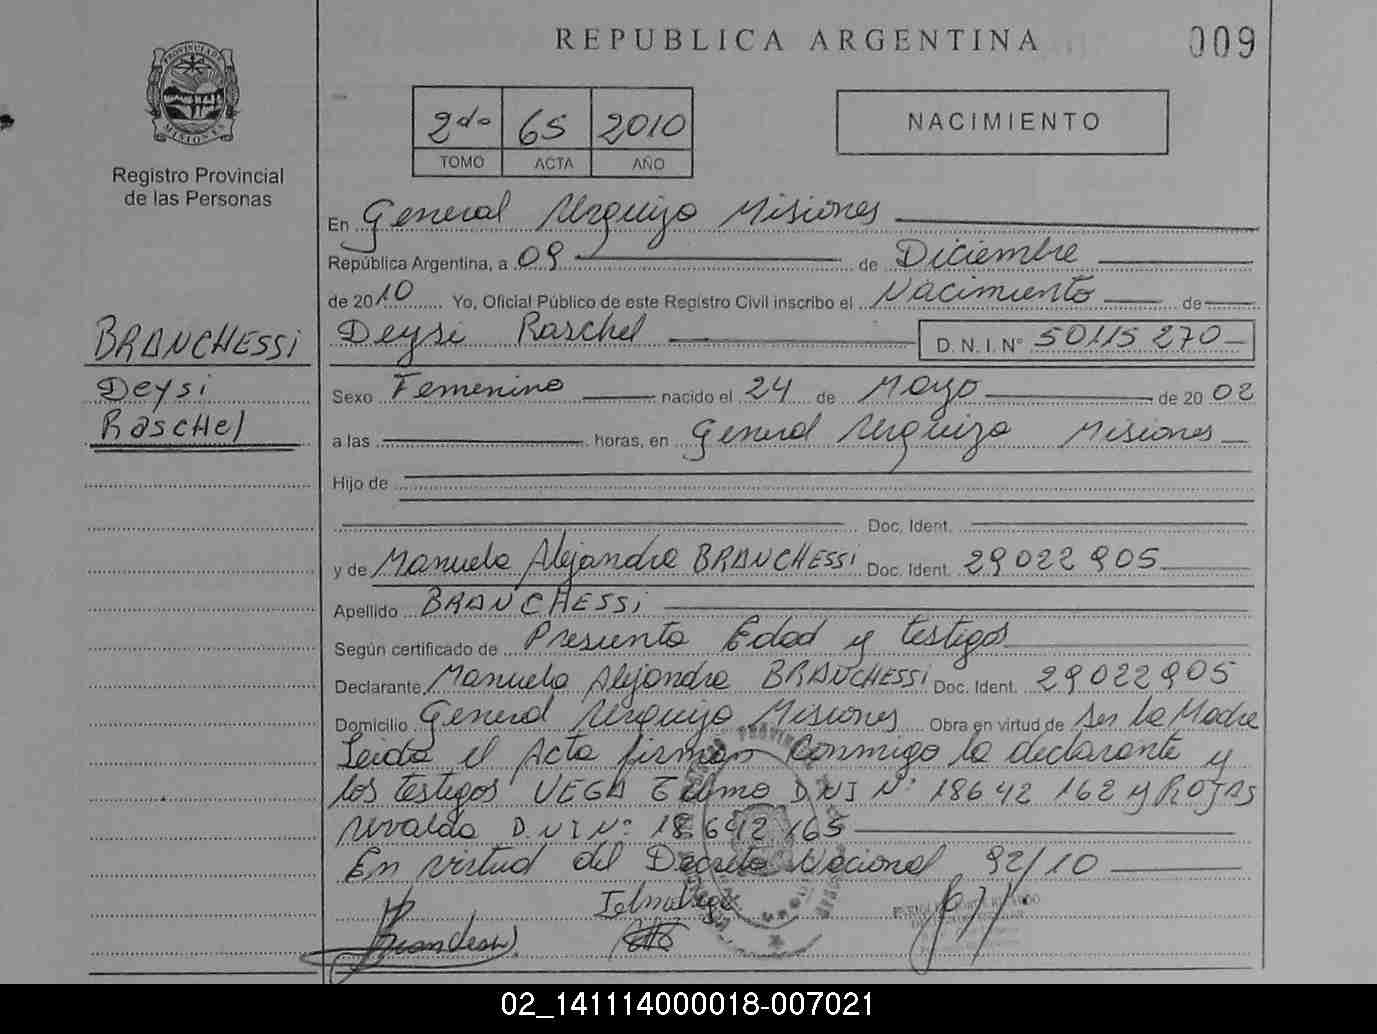 REPUBLICA ARGENTINA
009
PROVINCIA DE MISIONES
Registro Provincial
de las Personas
2do 65 2010
TOMO ACTA AÑO
NACIMIENTO
En General Urquiza Misiones
República Argentina, a 09 de Diciembre
de 2010 Yo, Oficial Público de este Registro Civil inscribo el Nacimiento de
Deysi Raschel D.N.I. N° 50115270
BRANCHESSi
Deysi
RascHel
Sexo Femenino nacido el 24 de Mayo de 2002
a las horas, en General Urquiza Misiones
Hijo de
Doc. Ident.
y de Manuela Alejandra BRANCHESSi Doc. Ident. 29022905
Apellido BRANCHESSi
Según certificado de Presunta Edad y testigos
Declarante Manuela Alejandra BRANCHESSi Doc. Ident. 29022905
Domicilio General Urquiza Misiones Obra en virtud de Ser la Madre
Leida el Acta firman Conmigo la declarante y
los testigos VEGA Telmo DNI N° 18642162 y ROJAS
DNI N° 18642165
En virtud del Decreto Nacional 92/10
02_141114000018-007021